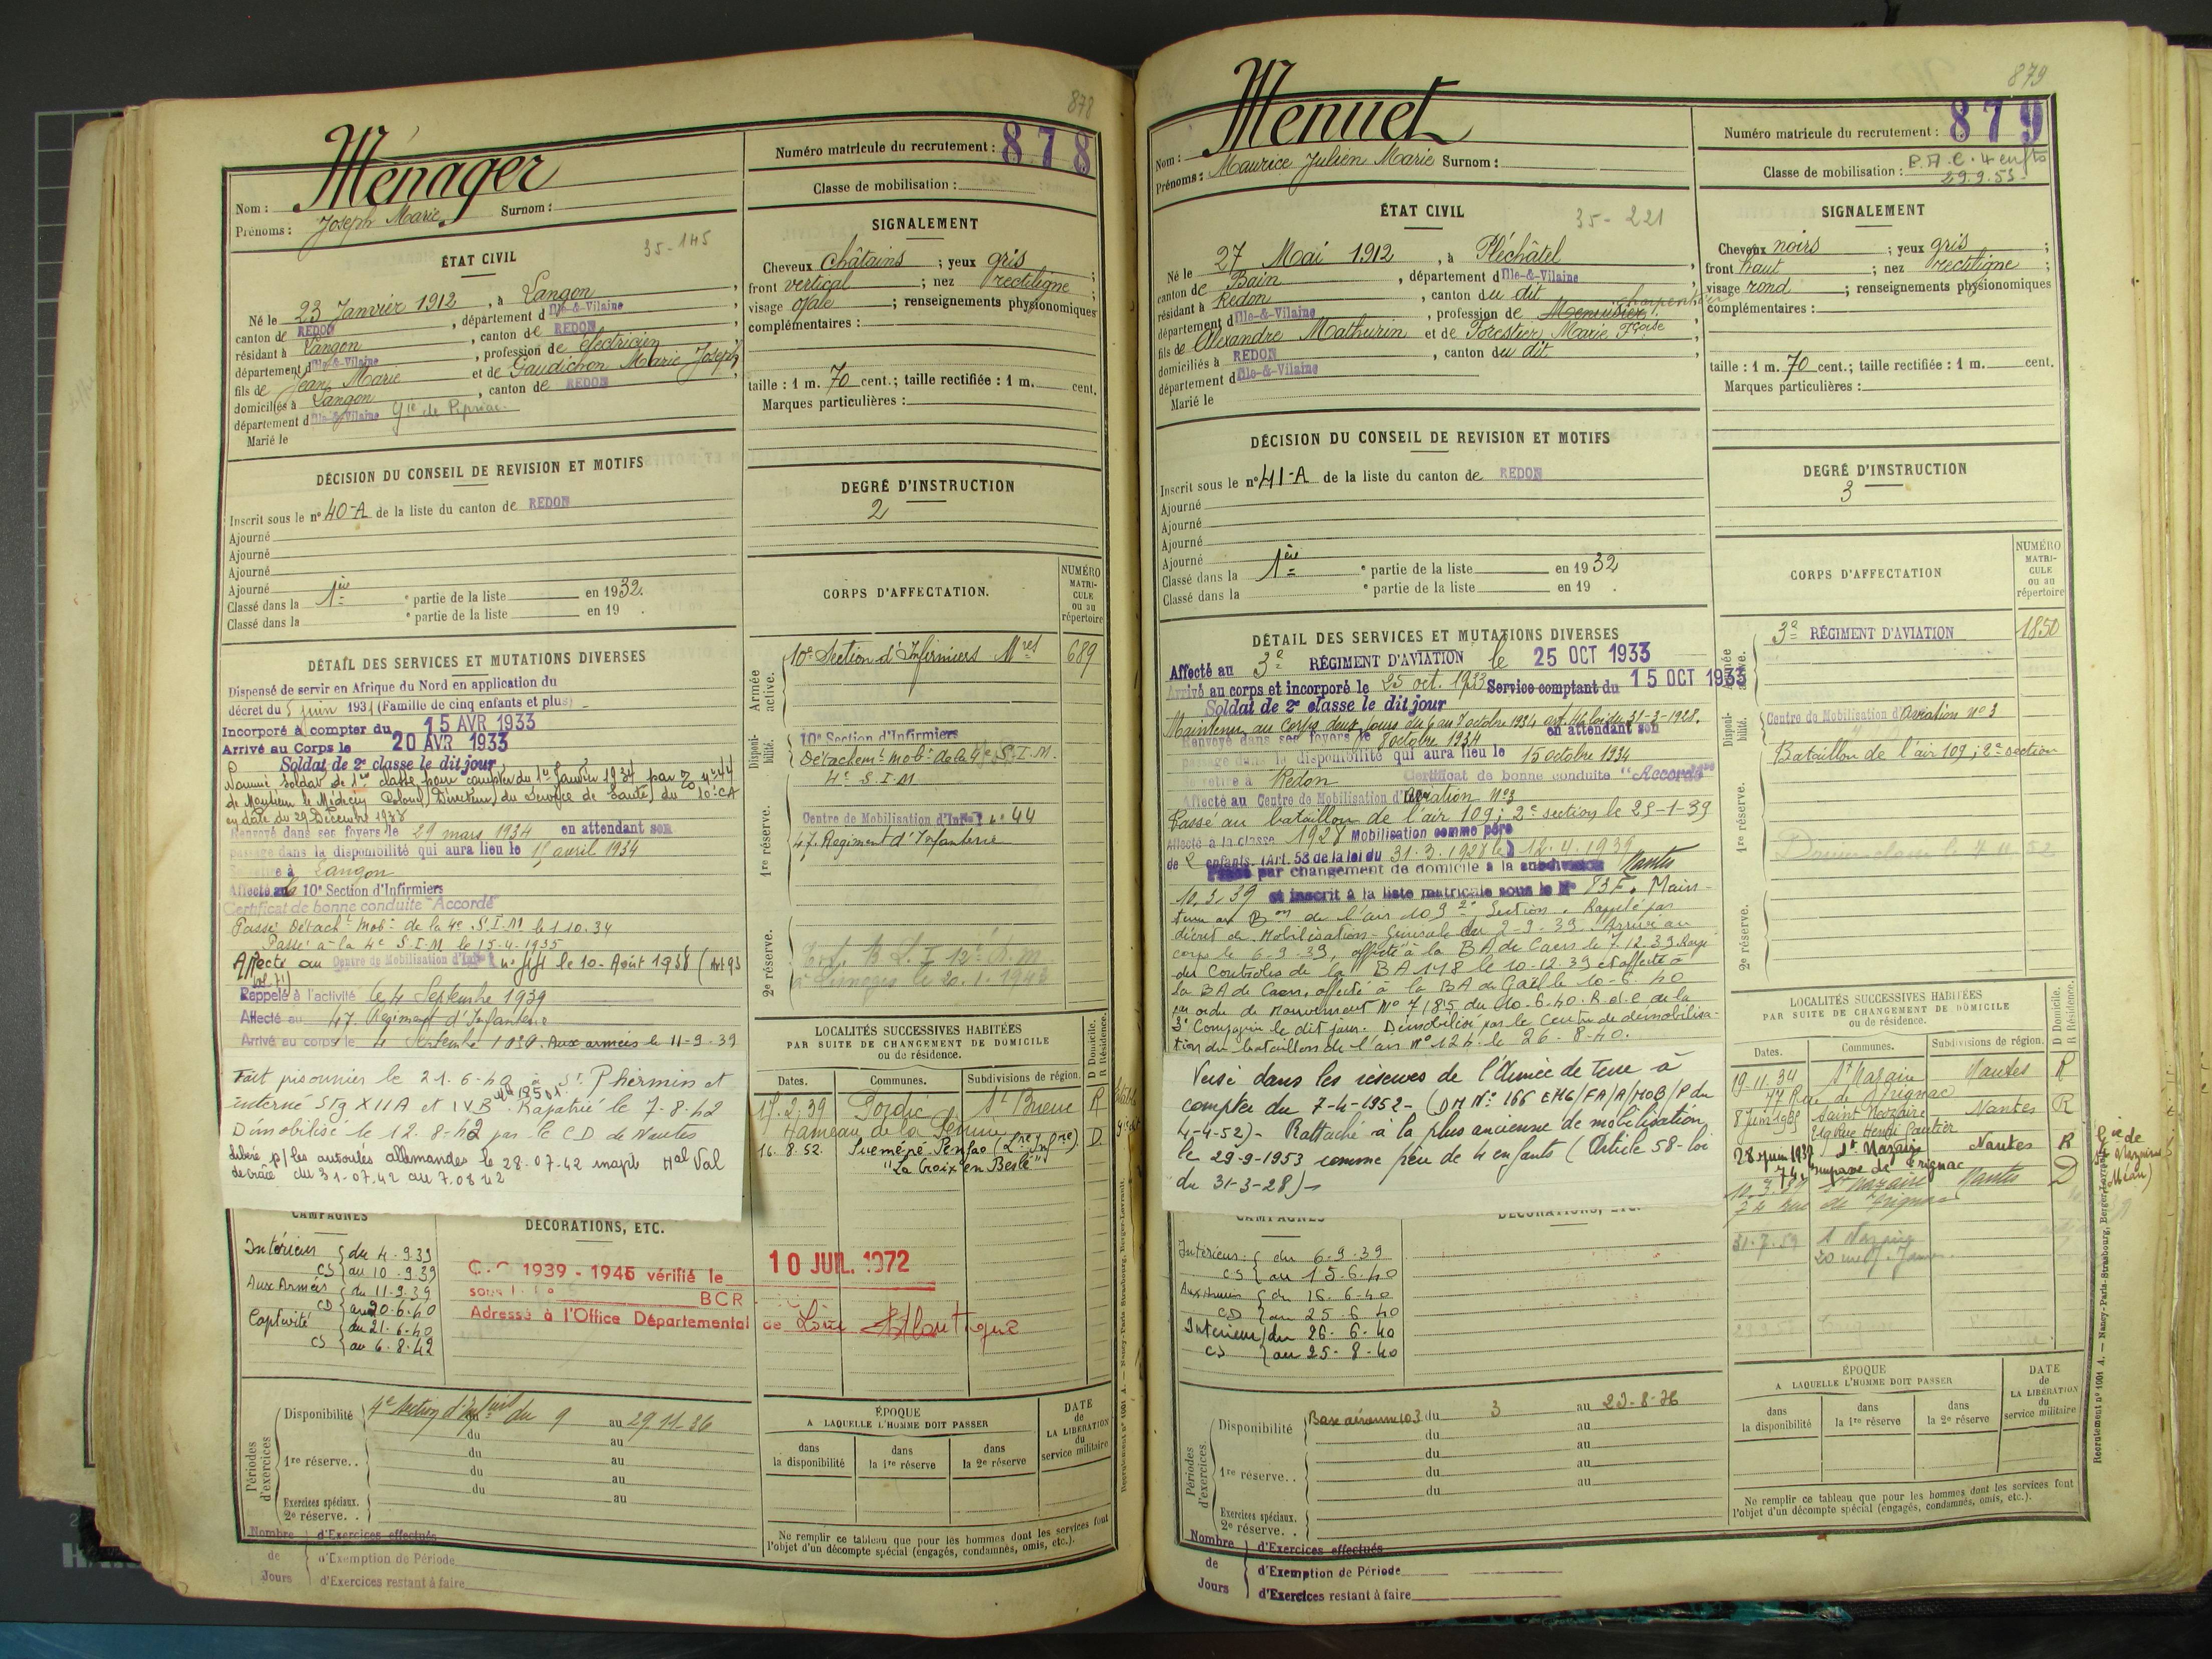 878
Ménager
Nom :
Prénoms : Joseph Marie Surnom :
Numéro matricule du recrutement : 878
Classe de mobilisation :
ÉTAT CIVIL
35-145
Né le 23 Janvier 1912, à Langon,
canton de REDON, département d'Ille-&-Vilaine,
résidant à Langon, canton de REDON,
département d'Ille-&-Vilaine, profession de électricien
fils de Jean Marie et de Gaudichon Marie Joseph,
domiciliés à Langon, canton de REDON,
département d'Ille-&-Vilaine Gie de Pipriac.
Marié le
SIGNALEMENT
Cheveux châtains ; yeux gris ;
front vertical ; nez rectiligne ;
visage ovale ; renseignements physionomiques
complémentaires :
taille : 1 m. 70 cent.; taille rectifiée : 1 m. cent.
Marques particulières :
DÉCISION DU CONSEIL DE REVISION ET MOTIFS
Inscrit sous le n° 40-A de la liste du canton de REDON
Ajourné
Ajourné
Ajourné
Ajourné
Classé dans la 1ère e partie de la liste en 1932.
Classé dans la e partie de la liste en 19 .
DEGRÉ D'INSTRUCTION
2
DÉTAIL DES SERVICES ET MUTATIONS DIVERSES
Dispensé de servir en Afrique du Nord en application du
décret du 5 juin 1931 (Famille de cinq enfants et plus)
Incorporé à compter du 15 AVR 1933
Arrivé au Corps le 20 AVR 1933
Soldat de 2e classe le dit jour
Nommé soldat de 1re classe pour compter du 1er Janvier 1934 par n° 44
de Monsieur le Médecin Colonel, Directeur du Service de Santé du 10e CA
en date du 29 Décembre 1933
Renvoyé dans ses foyers le 29 mars 1934 en attendant son
passage dans la disponibilité qui aura lieu le 15 avril 1934
Se retire à Langon
Affecté à la 10e Section d'Infirmiers
Certificat de bonne conduite "Accordé"
Passé Détacht Mobe de la 4e S.I.M le 1.10.34
Passé à la 4e S.I.M le 15.4.1935
Affecté au Centre de Mobilisation d'Infie n° 44 le 10-Août 1938 (Art 93
Rappelé à l'activité le 4 Septembre 1939
Affecté au 47. Régiment d'Infanterie
Arrivé au corps le 4 Septembre 1939. Aux armées le 11-9-39
Fait prisonnier le 21.6.40 à St. Phermin et
interné Stg XIIA et IVB. Rapatrié le 7.8.42
Démobilisé le 12.8-42 par le C.D de Nantes
libéré p/ les autorités allemandes le 28.07.42 Hal Val
de Grâce du 31.07.42 au 7.08.42
CORPS D'AFFECTATION.
NUMÉRO MATRICULE ou au répertoire
Armée active.
10e Section d'Infirmiers Mres 689
Disponibilité.
10e Section d'Infirmiers
Détachemt mobe de la 4e S.I.M.
4e S.I.M
1re réserve.
Centre de Mobilisation d'Infie n° 44
47. Régiment d'Infanterie
2e réserve.
à Limoges le 20.1.1943
LOCALITÉS SUCCESSIVES HABITÉES
PAR SUITE DE CHANGEMENT DE DOMICILE
ou de résidence.
D Domicile.
R Résidence.
Dates. Communes. Subdivisions de région.
17.2.39 St Brieuc R
Hameau de la
16.8.52. Guéméné Penfao (Lre Infre) D
"La Croix en Beslé"
CAMPAGNES
Intérieur du 4.9.39
CS au 10.9.39
Aux Armées du 11-9-39
CD au 20-6-40
Captivité du 21.6.40
CS au 6.8.42
DÉCORATIONS, ETC.
C.C 1939-1945 vérifié le 10 JUIL. 1972
BCR
Adressé à l'Office Départemental de Loire Atlantique
Périodes d'exercices
Disponibilité 4e Section d'Inf. milit du 9 au 29.11.36
du au
1re réserve.. du au
du au
du au
Exercices spéciaux.
2e réserve. .
Nombre de Jours
d'Exercices effectués
d'Exemption de Période
d'Exercices restant à faire
ÉPOQUE
A LAQUELLE L'HOMME DOIT PASSER
dans la disponibilité
dans la 1re réserve
dans la 2e réserve
DATE de LA LIBÉRATION du service militaire
Ne remplir ce tableau que pour les hommes dont les services font
l'objet d'un décompte spécial (engagés, condamnés, omis, etc.).
879
Menuet
Nom :
Prénoms : Maurice Julien Marie Surnom :
Numéro matricule du recrutement : 879
Classe de mobilisation : P.A.C. 4 enfts
29.9.53-
ÉTAT CIVIL
35-221
Né le 27 Mai 1912, à Pléchâtel,
canton de Bain, département d'Ille-&-Vilaine,
résidant à Redon, canton du dit
département d'Ille-&-Vilaine, profession de Menuisier charpentier,
fils de Alexandre Mathurin et de Forestier Marie Fçoise,
domiciliés à REDON, canton du dit
département d'Ille-&-Vilaine
Marié le
SIGNALEMENT
Cheveux noirs ; yeux gris ;
front haut ; nez rectiligne ;
visage rond ; renseignements physionomiques
complémentaires :
taille : 1 m. 70 cent.; taille rectifiée : 1 m. cent.
Marques particulières :
DÉCISION DU CONSEIL DE REVISION ET MOTIFS
Inscrit sous le n° 41-A de la liste du canton de REDON
Ajourné
Ajourné
Ajourné
Ajourné
Classé dans la 1ère e partie de la liste en 1932
Classé dans la e partie de la liste en 19 .
DEGRÉ D'INSTRUCTION
3
DÉTAIL DES SERVICES ET MUTATIONS DIVERSES
Affecté au 3e RÉGIMENT D'AVIATION le 25 OCT 1933
Arrivé au corps et incorporé le 25 oct. 1933 Service comptant du 15 OCT 1933
Soldat de 2e classe le dit jour
Maintenu au Corps deux jours du 6 au 7 octobre 1934 art. 46 loi du 31-3-1928.
Renvoyé dans ses foyers le 8 octobre 1934 en attendant son
passage dans la disponibilité qui aura lieu le 15 octobre 1934
se retire à Redon Certificat de bonne conduite "Accordé"
Affecté au Centre de Mobilisation d'Aviation n°3
Passé au bataillon de l'air 109, 2e section le 25-1-39
Affecté à la classe 1928 Mobilisation comme père
de 2 enfants. (Art. 58 de la loi du 31.3.1928 le 12.4.1939
Passé par changement de domicile à la subdivision Nantes
10.3.39 et inscrit à la liste matricule sous le N° 83F. Main-
tenu au Bon de l'air 109 2e Section. Rappelé par
décret de Mobilisation Générale du 2-9-39. Arrivé au
corps le 6-9-39, affecté à la BA de Caen le 7.12.39 Rayé
des Contrôles de la BA 118 le 10-12-39 et affecté à
la BA de Caen, affecté à la BA de Gaël le 10-6-40
par ordre de mouvement N° 7185 du 10-6-40. R.d.c de la
3e Compagnie le dit jour. Démobilisé par le Centre de démobilisa-
tion du bataillon de l'air n° 124 le 26-8-40.
Versé dans les réserves de l'Armée de Terre à
compter du 7-4-1952- (DM N° 166 EMG/FA/A/MOB/P du
4-4-52)- Rattaché à la plus ancienne de mobilisation
le 29-9-1953 comme père de 4 enfants (Article 58-loi
du 31-3-28)-
CORPS D'AFFECTATION
NUMÉRO MATRICULE ou au répertoire
Armée active.
3e RÉGIMENT D'AVIATION 1850
Disponibilité.
Centre de Mobilisation d'Aviation n° 3
Bataillon de l'air 109, 2e section
1re réserve.
2e réserve.
LOCALITÉS SUCCESSIVES HABITÉES
PAR SUITE DE CHANGEMENT DE DOMICILE
ou de résidence.
D Domicile.
R Résidence.
Dates. Communes. Subdivisions de région.
19.11.34 St Nazaire Nantes R
77 Rue de Trignac
8 Juin 1935 Saint Nazaire Nantes R
Rue Henri Gautier
28 juin 1937 St Nazaire Nantes R
74, Impasse de Trignac
10.3.39 St Nazaire Nantes D
74 rue de Trignac
31.7.59 St Nazaire
CAMPAGNES
Intérieur du 6-9-39
CS au 15.6.40
Aux Armées du 16.6-40
CD au 25.6.40
Intérieur du 26-6-40
CS au 25-8-40
DÉCORATIONS, ETC.
Périodes d'exercices
Disponibilité Base aérienne 103 du 3 au 23-8-36
du au
du au
1re réserve. . du au
du au
Exercices spéciaux.
2e réserve. .
Nombre de Jours
d'Exercices effectués
d'Exemption de Période
d'Exercices restant à faire
ÉPOQUE
A LAQUELLE L'HOMME DOIT PASSER
dans la disponibilité
dans la 1re réserve
dans la 2e réserve
DATE de LA LIBÉRATION du service militaire
Ne remplir ce tableau que pour les hommes dont les services font
l'objet d'un décompte spécial (engagés, condamnés, omis, etc.).
Recrutement n° 1001 A. — Nancy-Paris-Strasbourg, Berger-Levrault.